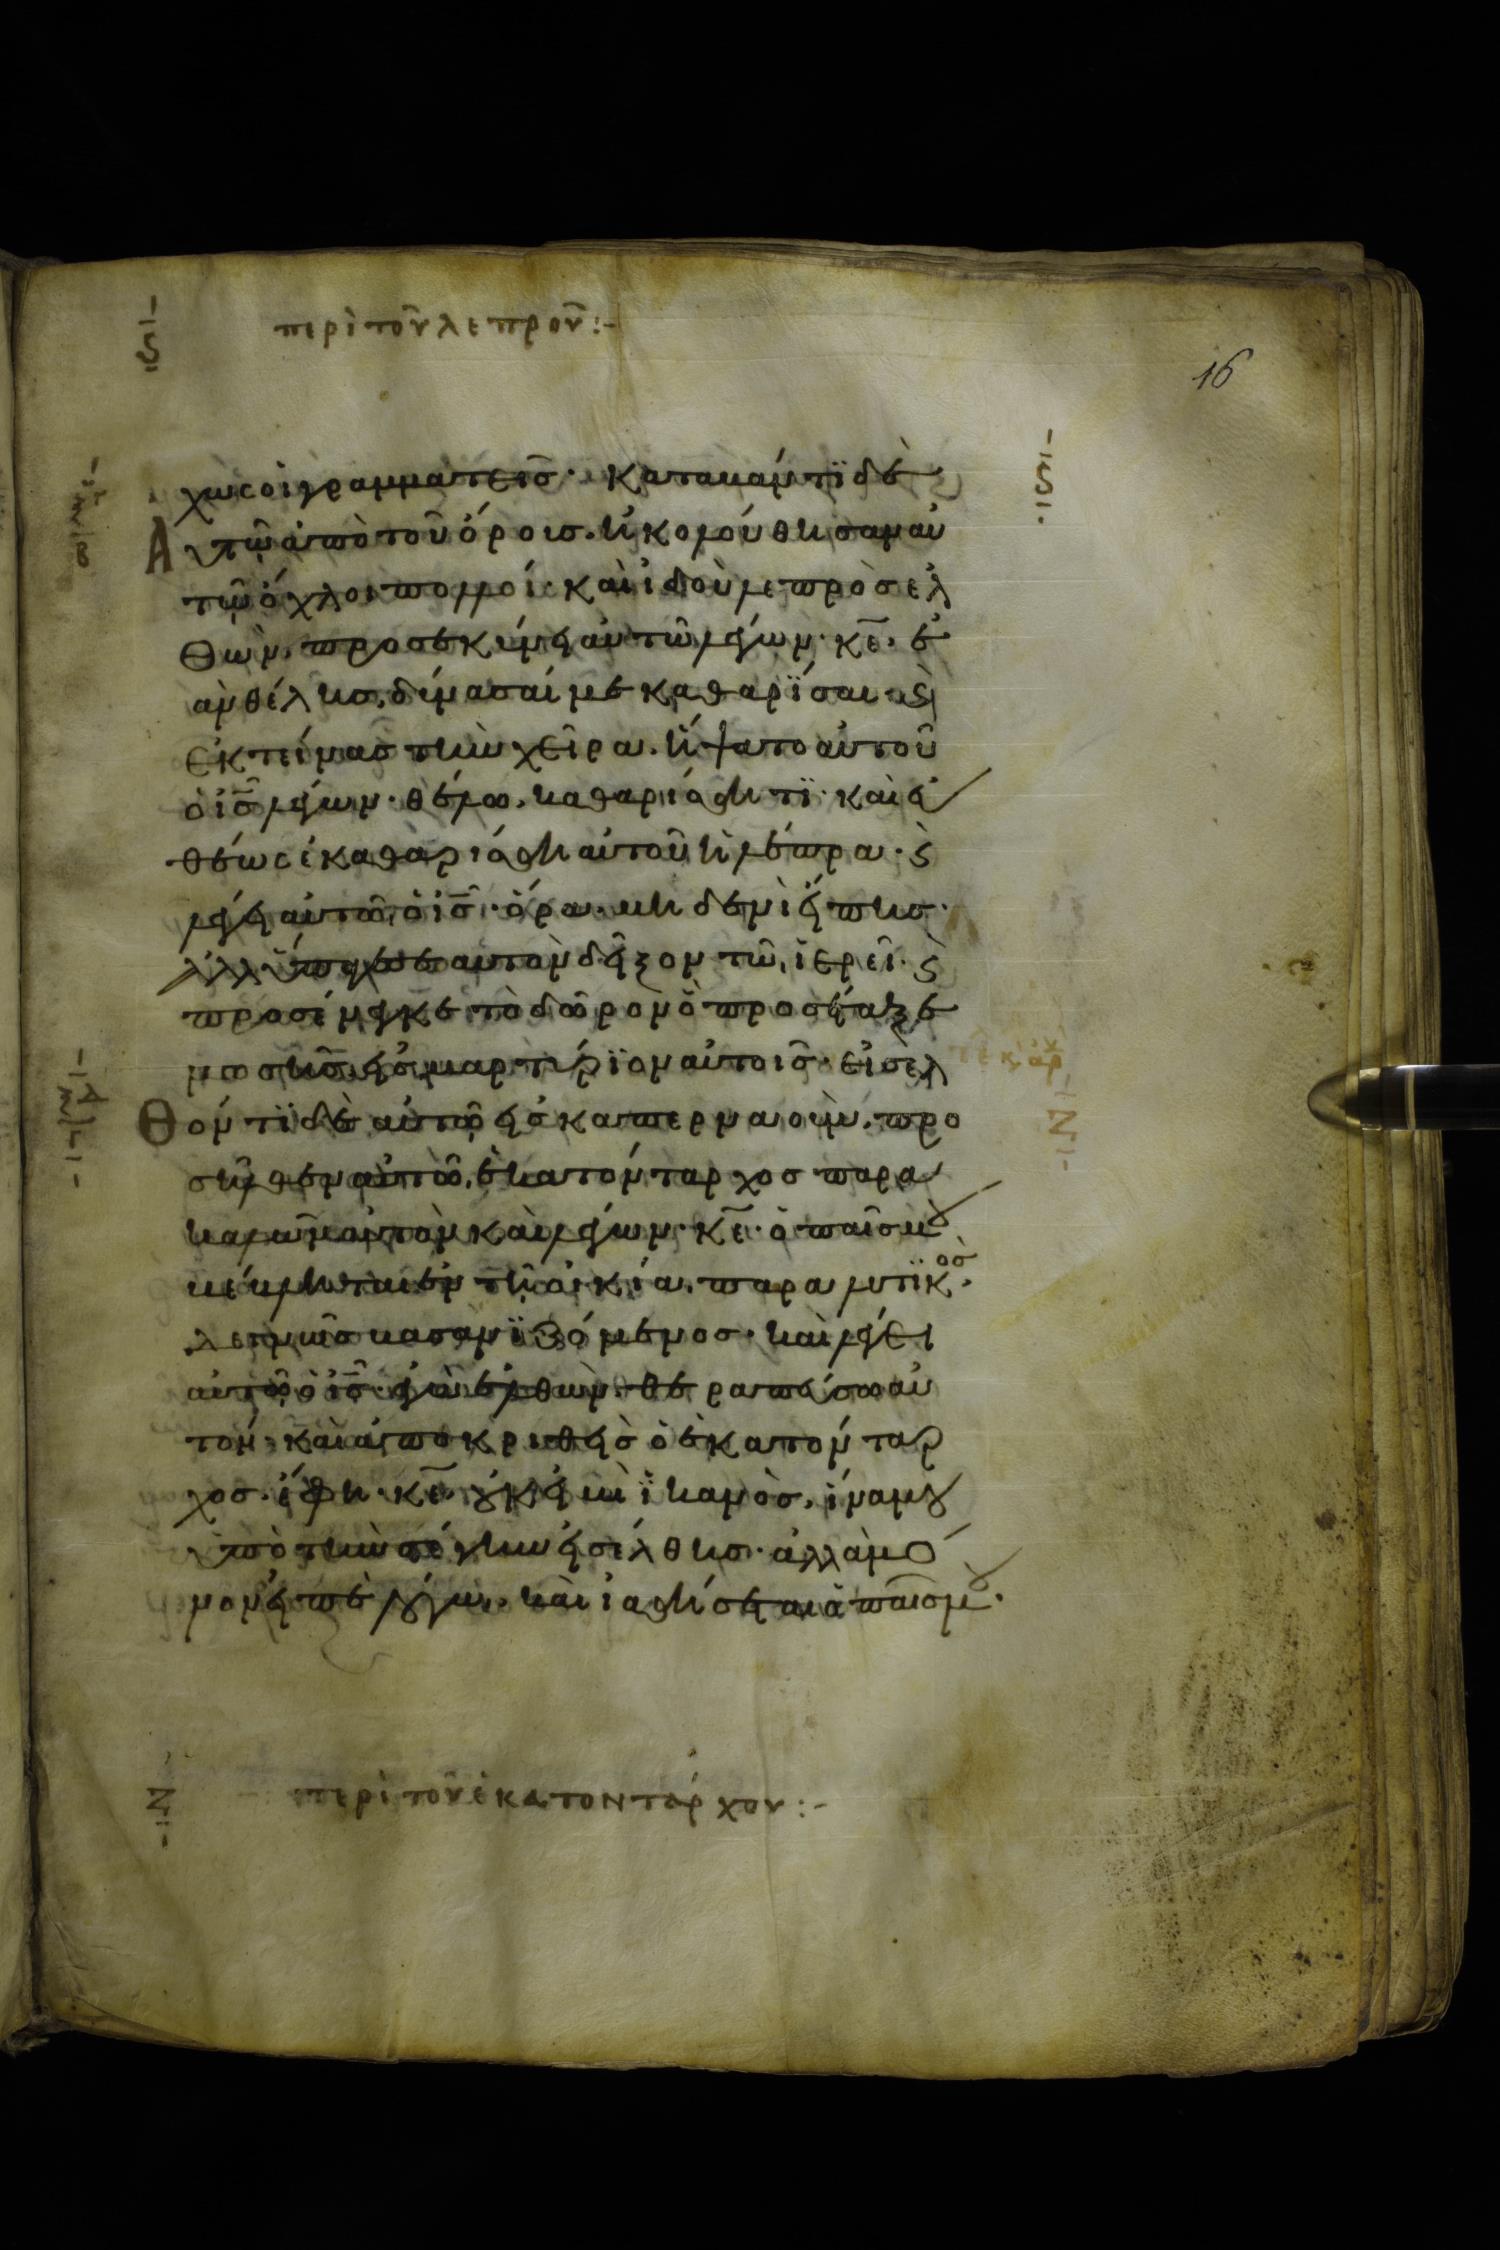 ϛ
περὶ τοῦ λεπροῦ :-
16
χ ὡς οἱ γραμματεῖς· καταβάντϊ δὲ
Αὐτῷ ἀπὸ τοῦ ὄροις. ἠκολούθησαν αὐ
τῷ ὄχλοι πολλοί· καὶ ἰδοὺ λεπρὸς ἐλ
θὼν, προσεκύνει αὐτῷ λέγων· κε̅· ἐ
ὰν θέλης, δύνασαί με καθαρΐσαι· ϛ
ἐκτείνας τὴν χεῖρα. ἥψατο αὐτοῦ
ὁ ις̅ λέγων· θέλω, καθαρίσθητϊ· καὶ εὐ
θέως ἐκαθαρίσθη αὐτοῦ ἡ λέπρα· ϛ
λέγει αὐτῷ, ὁ ις̅· ὅρα. μηδενὶ εἴπης·
ἀλλ' ὕπαγε σεαυτὸν δεῖξον τῷ, ἱερεῖ· ϛ
προσένεγκε τὸ δῶρον ὃ προσέταξε
μωσῆς, εἰς μαρτύρϊον αὐτοῖς· εἰσελ
Θόντϊ δὲ αὐτῷ εἰς καπερναοὺμ, προ
σῆλθεν αὐτῷ, ἑκατόνταρχος παρα
καλῶν αὐτὸν καὶ λέγων· κε̅· ὁ παῖς μου
βέβληται ἐν τῇ οἰκία, παραλυτϊκος·
δεινῶς βασανϊζόμενος· καὶ λέγει
αὐτῷ ὁ ις̅· ἐγὼ ἐλθὼν. θεραπεύσω αὐ
τόν· καὶ ἀποκριθεὶς ὁ ἑκατόνταρ
χος. ἔφη· κε̅. οὐκ εἰμὶ ἱκανὸς, ἵνα μου
ὑπὸ τὴν στέγην εἰσέλθης· ἀλλὰ μό
νον εἰπὲ λόγω, καὶ ἰαθήσεται ὁ παῖς μου·
ϛ
Ζ
Ζ
περὶ τοῦ ἑκατοντάρχου :-